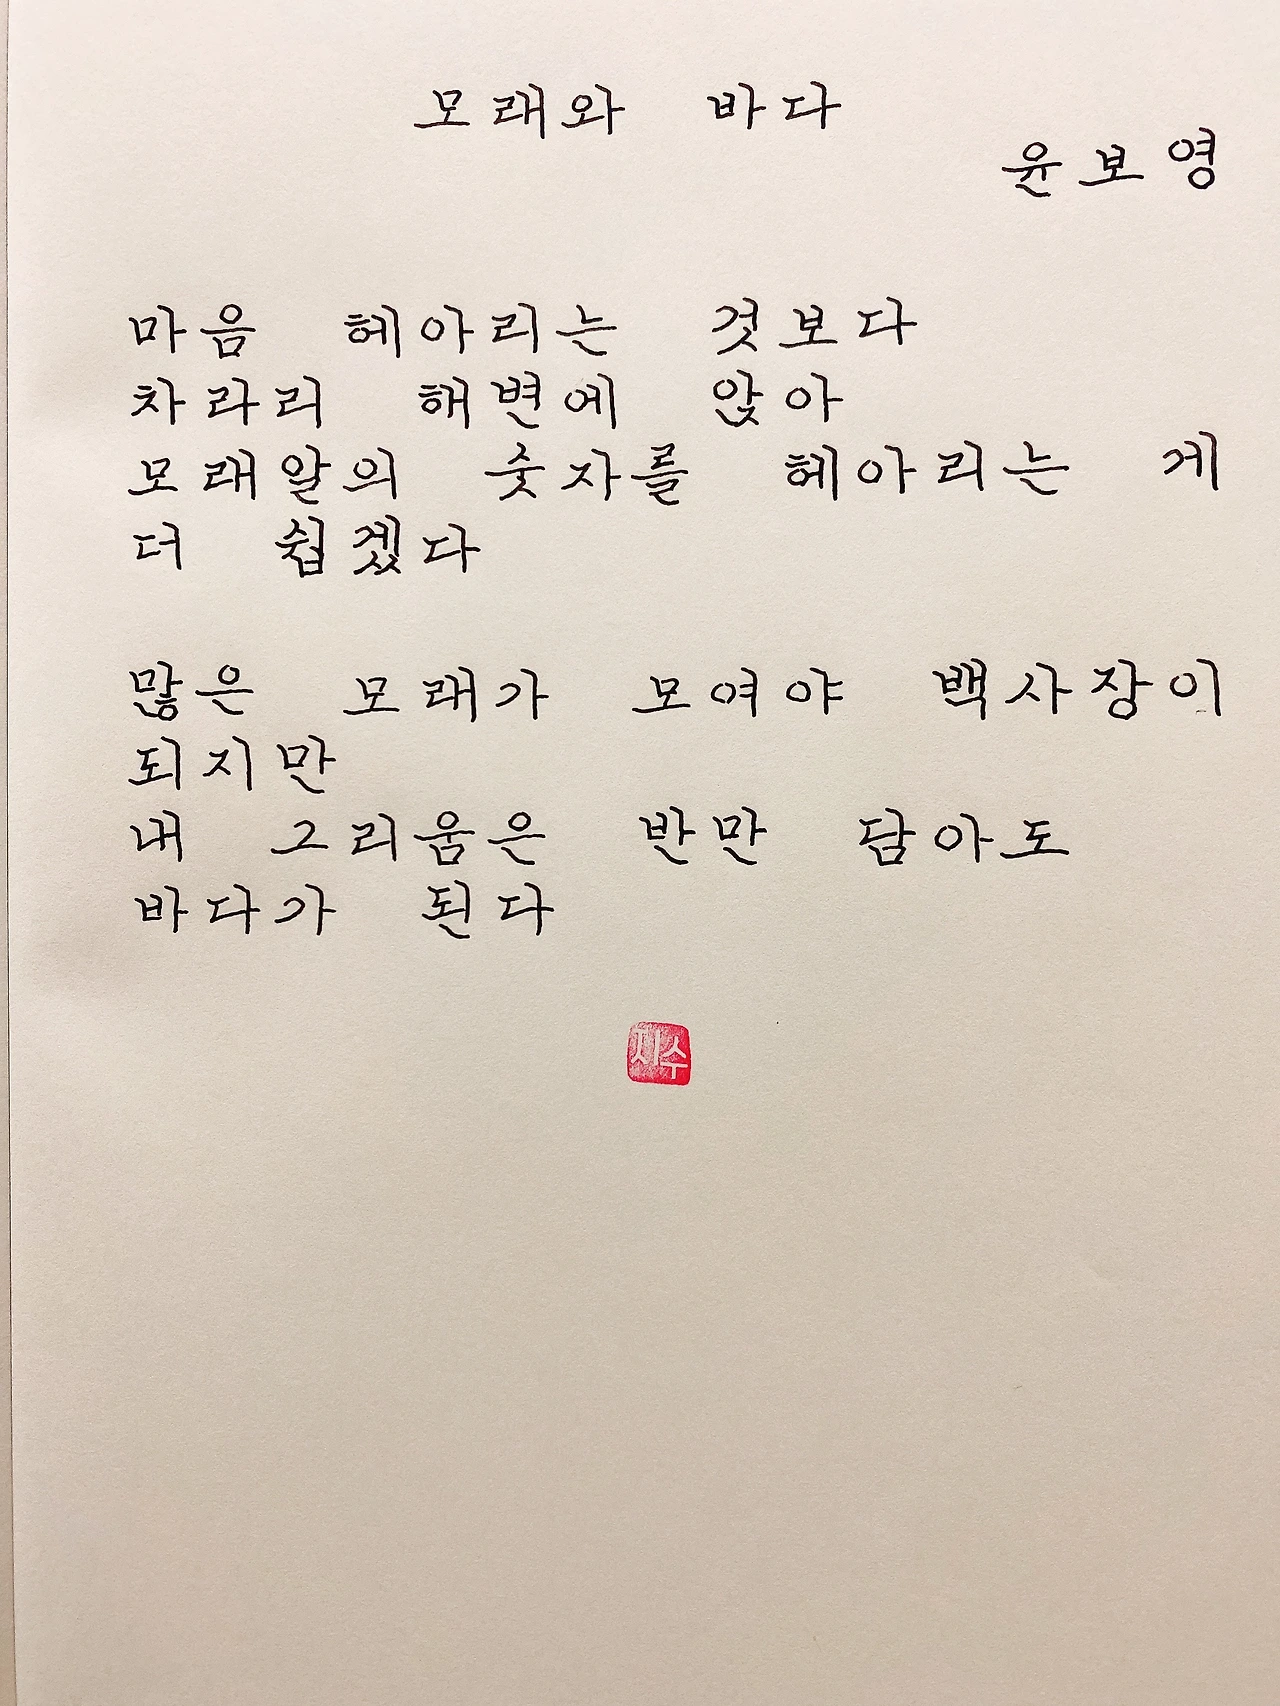 모래와 바다
윤보영
마음 헤아리는 것보다
차라리 해변에 앉아
모래알의 숫자를 헤아리는 게
더 쉽겠다
많은 모래가 모여야 백사장이
되지만
내 그리움은 반만 담아도
바다가 된다
지수